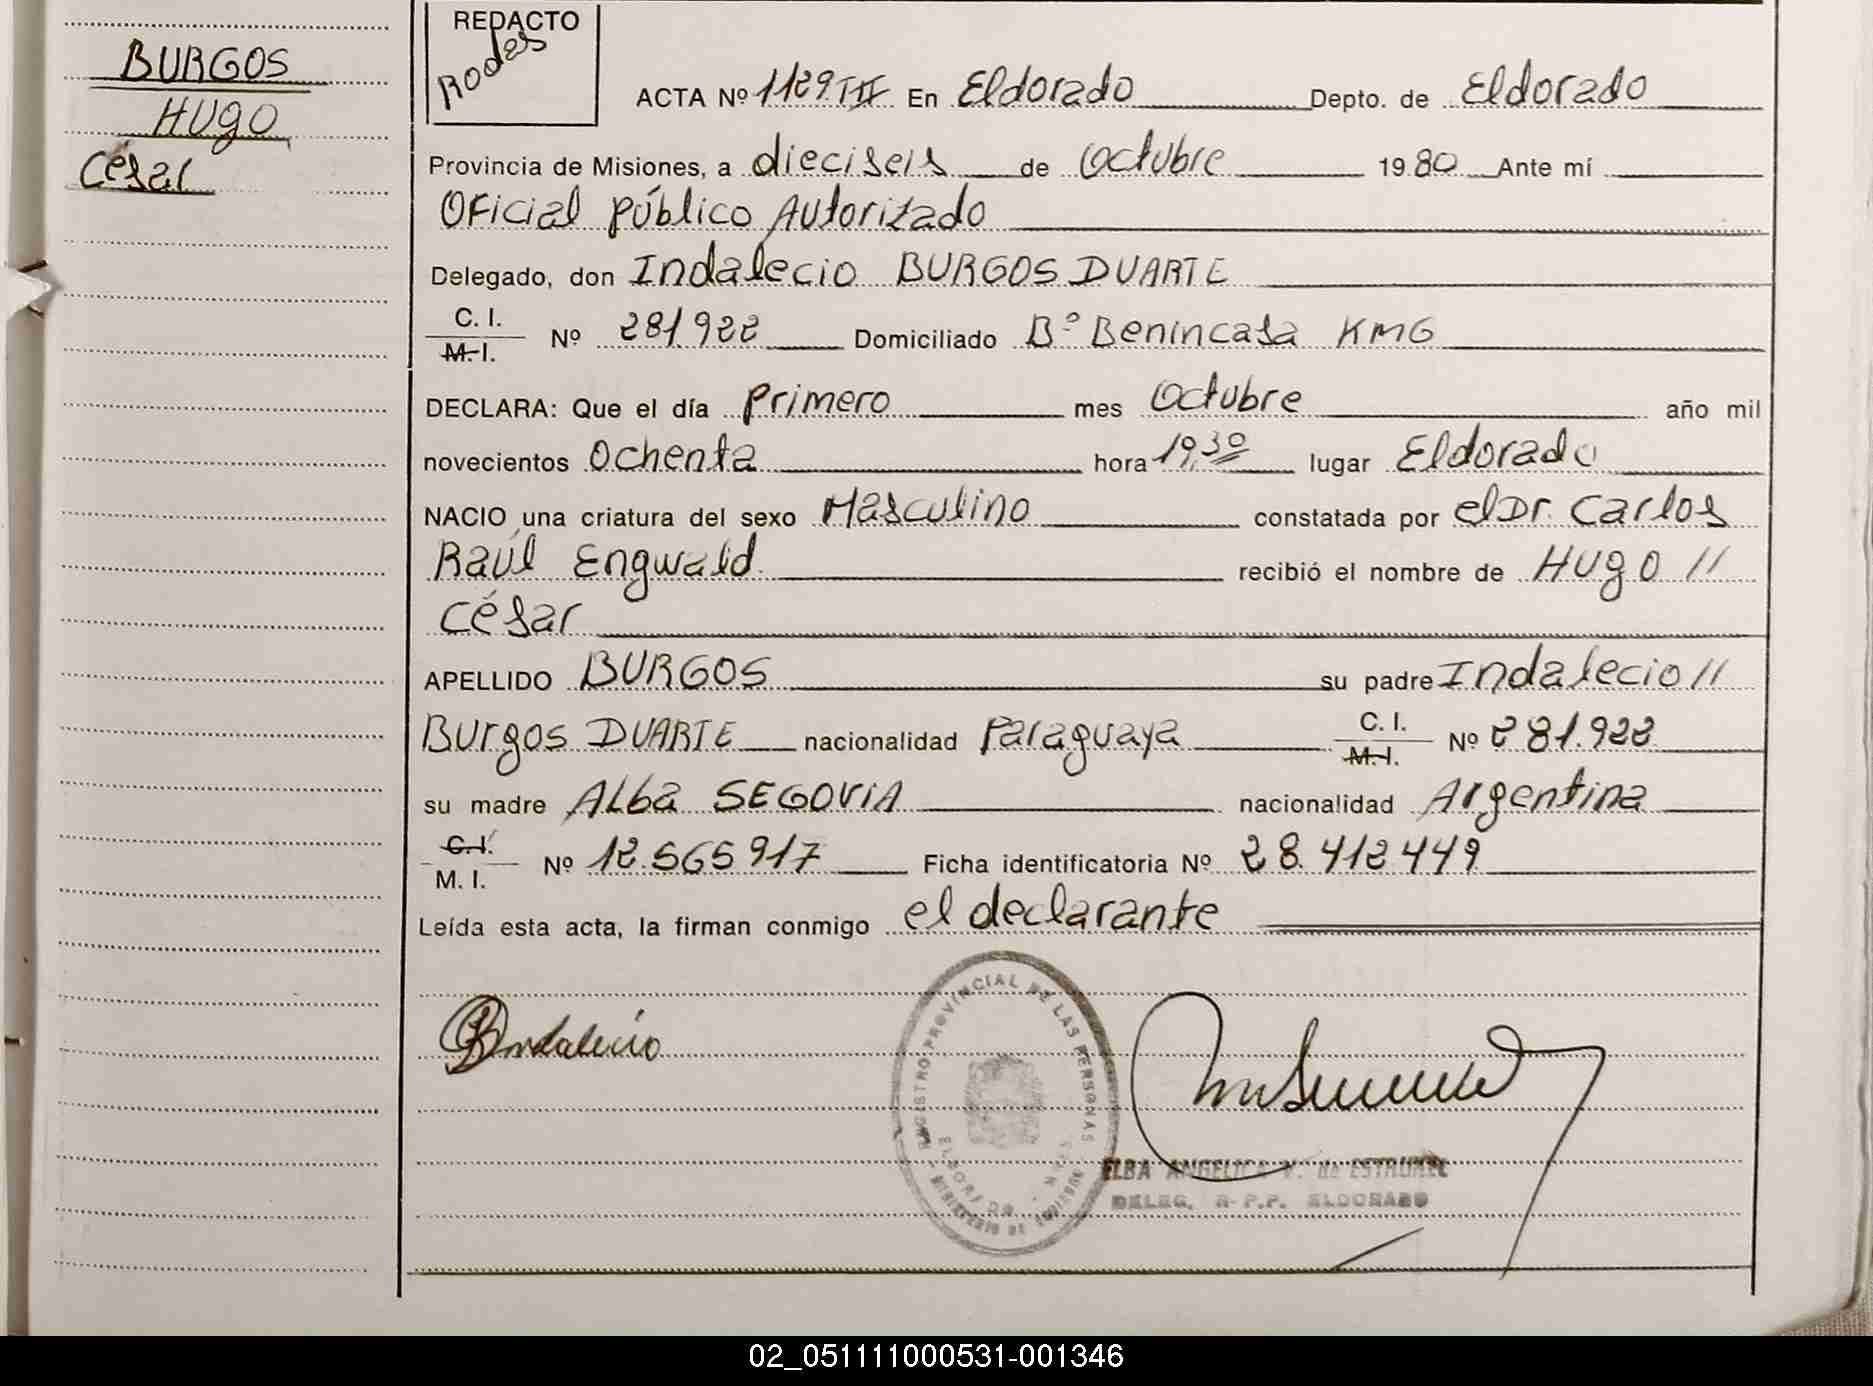 BURGOS
HUGO
César
REDACTO
Rodas
ACTA Nº 1129 TII En Eldorado Depto. de Eldorado
Provincia de Misiones, a dieciseis de Octubre 1980 Ante mí
Oficial Público Autorizado
Delegado, don Indalecio BURGOS DUARTE
C. I.
M. I. Nº 281.922 Domiciliado Bº Benincasa KM6
DECLARA: Que el día Primero mes Octubre año mil
novecientos Ochenta hora 19,30 lugar Eldorado
NACIO una criatura del sexo Masculino constatada por el Dr. Carlos
Raúl Engwald recibió el nombre de HUGO //
César
APELLIDO BURGOS su padre Indalecio //
Burgos DUARTE nacionalidad Paraguaya C. I. M. I. Nº 281.922
su madre Alba SEGOVIA nacionalidad Argentina
C. I.
M. I. Nº 12.565917 Ficha identificatoria Nº 28.412449
Leída esta acta, la firman conmigo el declarante
Indalecio
REGISTRO PROVINCIAL DE LAS PERSONAS
ELDORADO
ELBA ANGELICA de ESTRUMEL
DELEG. R.P.P. ELDORADO
02_051111000531-001346